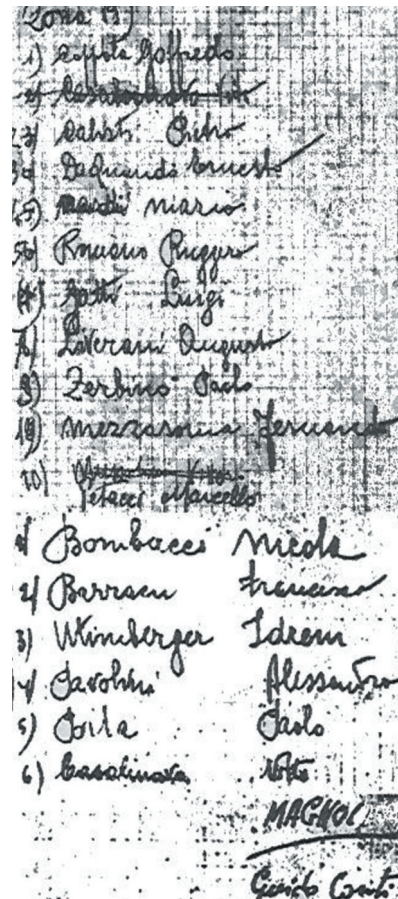 1) Coppola Goffredo
Calistri Pietro
Daquanno Ernesto
Nudi Mario
Romano Ruggero
Gatti Luigi
Liverani Augusto
9) Zerbino Paolo
Mezzasoma Fernando
10)
Petacci Marcello
1) Bombacci Nicola
2) Barracu Francesco
3) Utimberger Idreni
4) Pavolini Alessandro
5) Porta Paolo
6) Casalinuovo Vito
MAGNOLI
Guido Conti